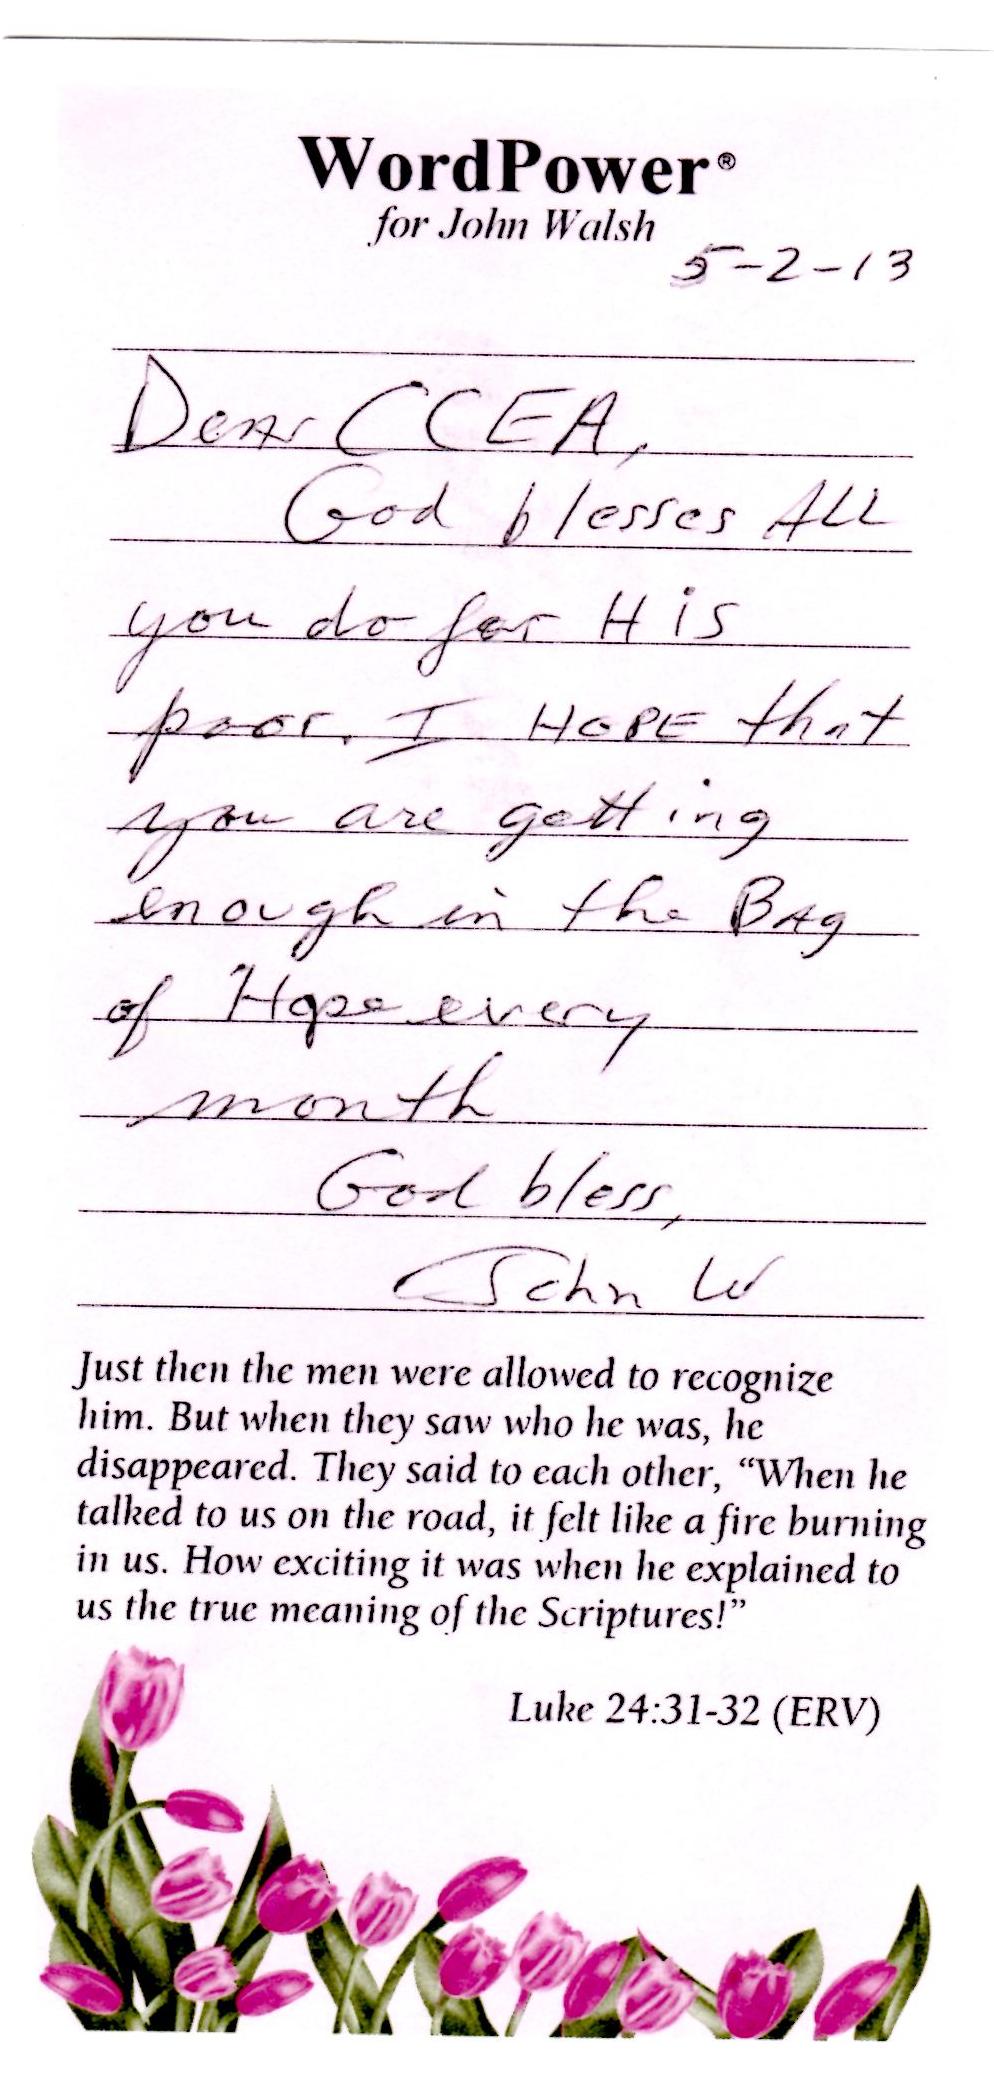 WordPower®
for John Walsh
5-2-13
Dear CCEA,
God blesses ALL
you do for His
poor. I HOPE that
you are getting
enough in the BAg
of Hope every
month
God bless,
John W
Just then the men were allowed to recognize
him. But when they saw who he was, he
disappeared. They said to each other, “When he
talked to us on the road, it felt like a fire burning
in us. How exciting it was when he explained to
us the true meaning of the Scriptures!”
Luke 24:31-32 (ERV)